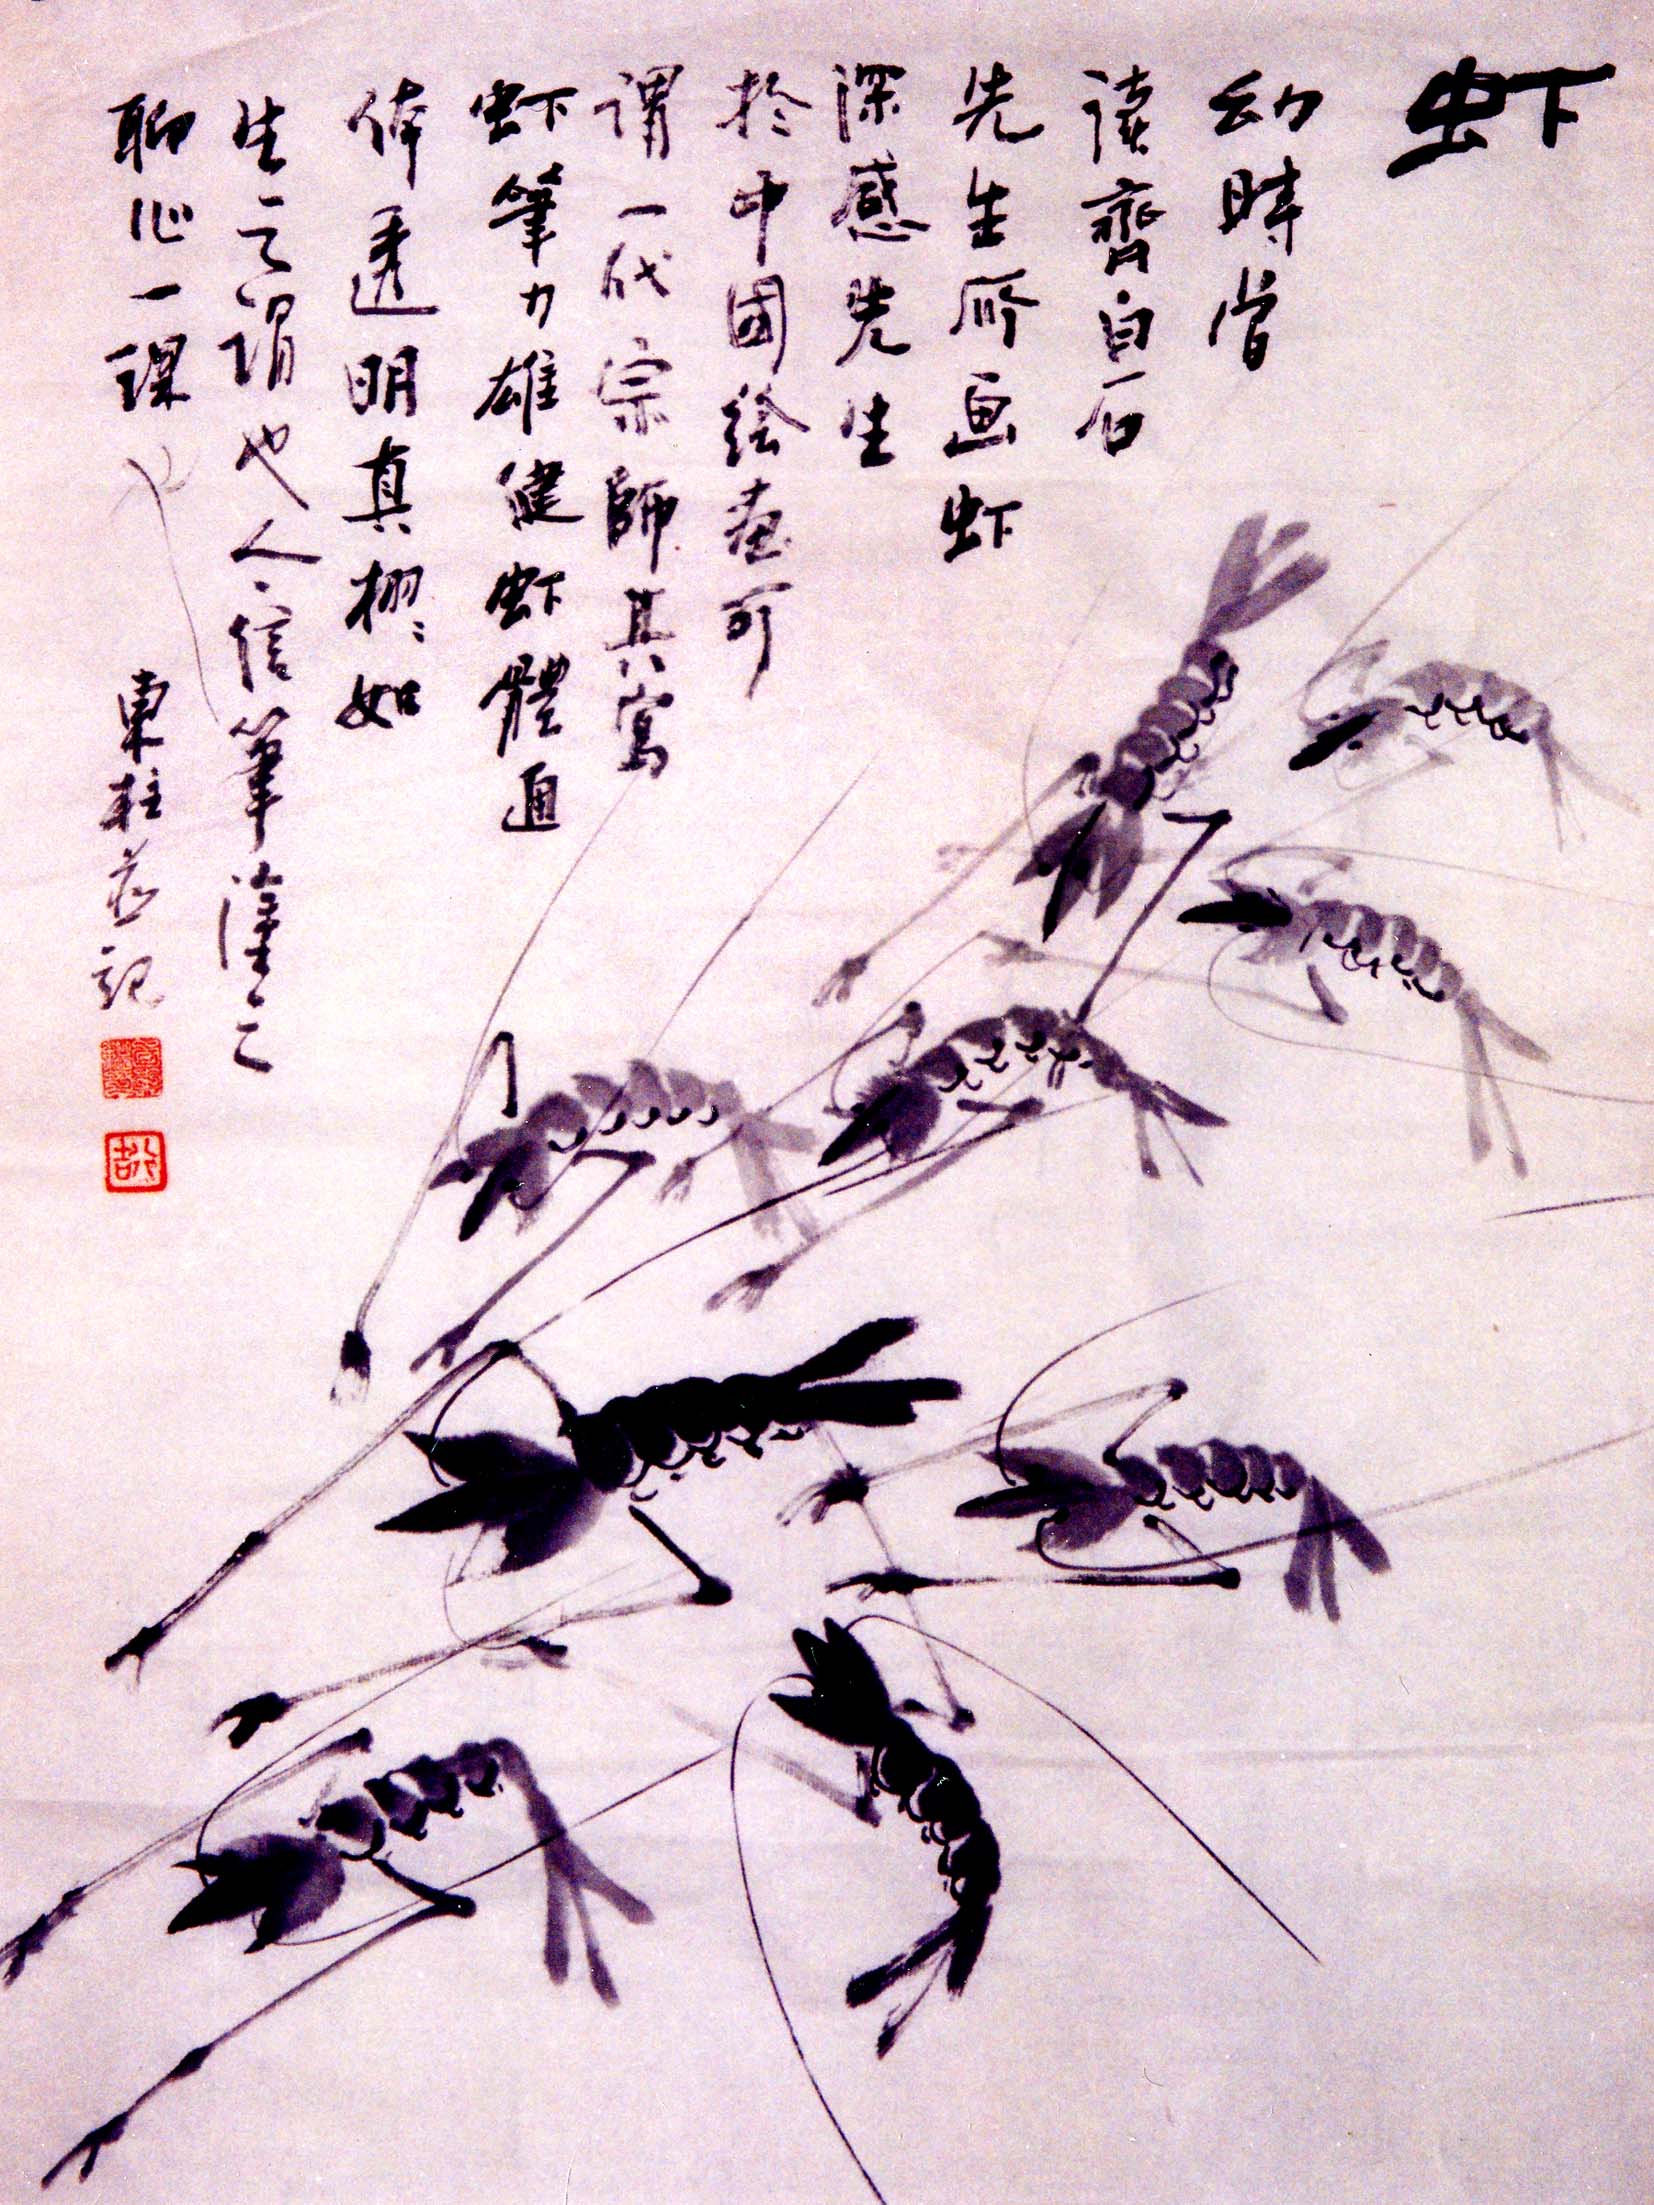 虾
幼時嘗
读齊白石
先生所画虾
深感先生
於中國绘畫可
谓一代宗師其寫
虾筆力雄健虾體通
体透明真栩栩如
生之谓也人信筆塗之
聊作一課
東柱并記